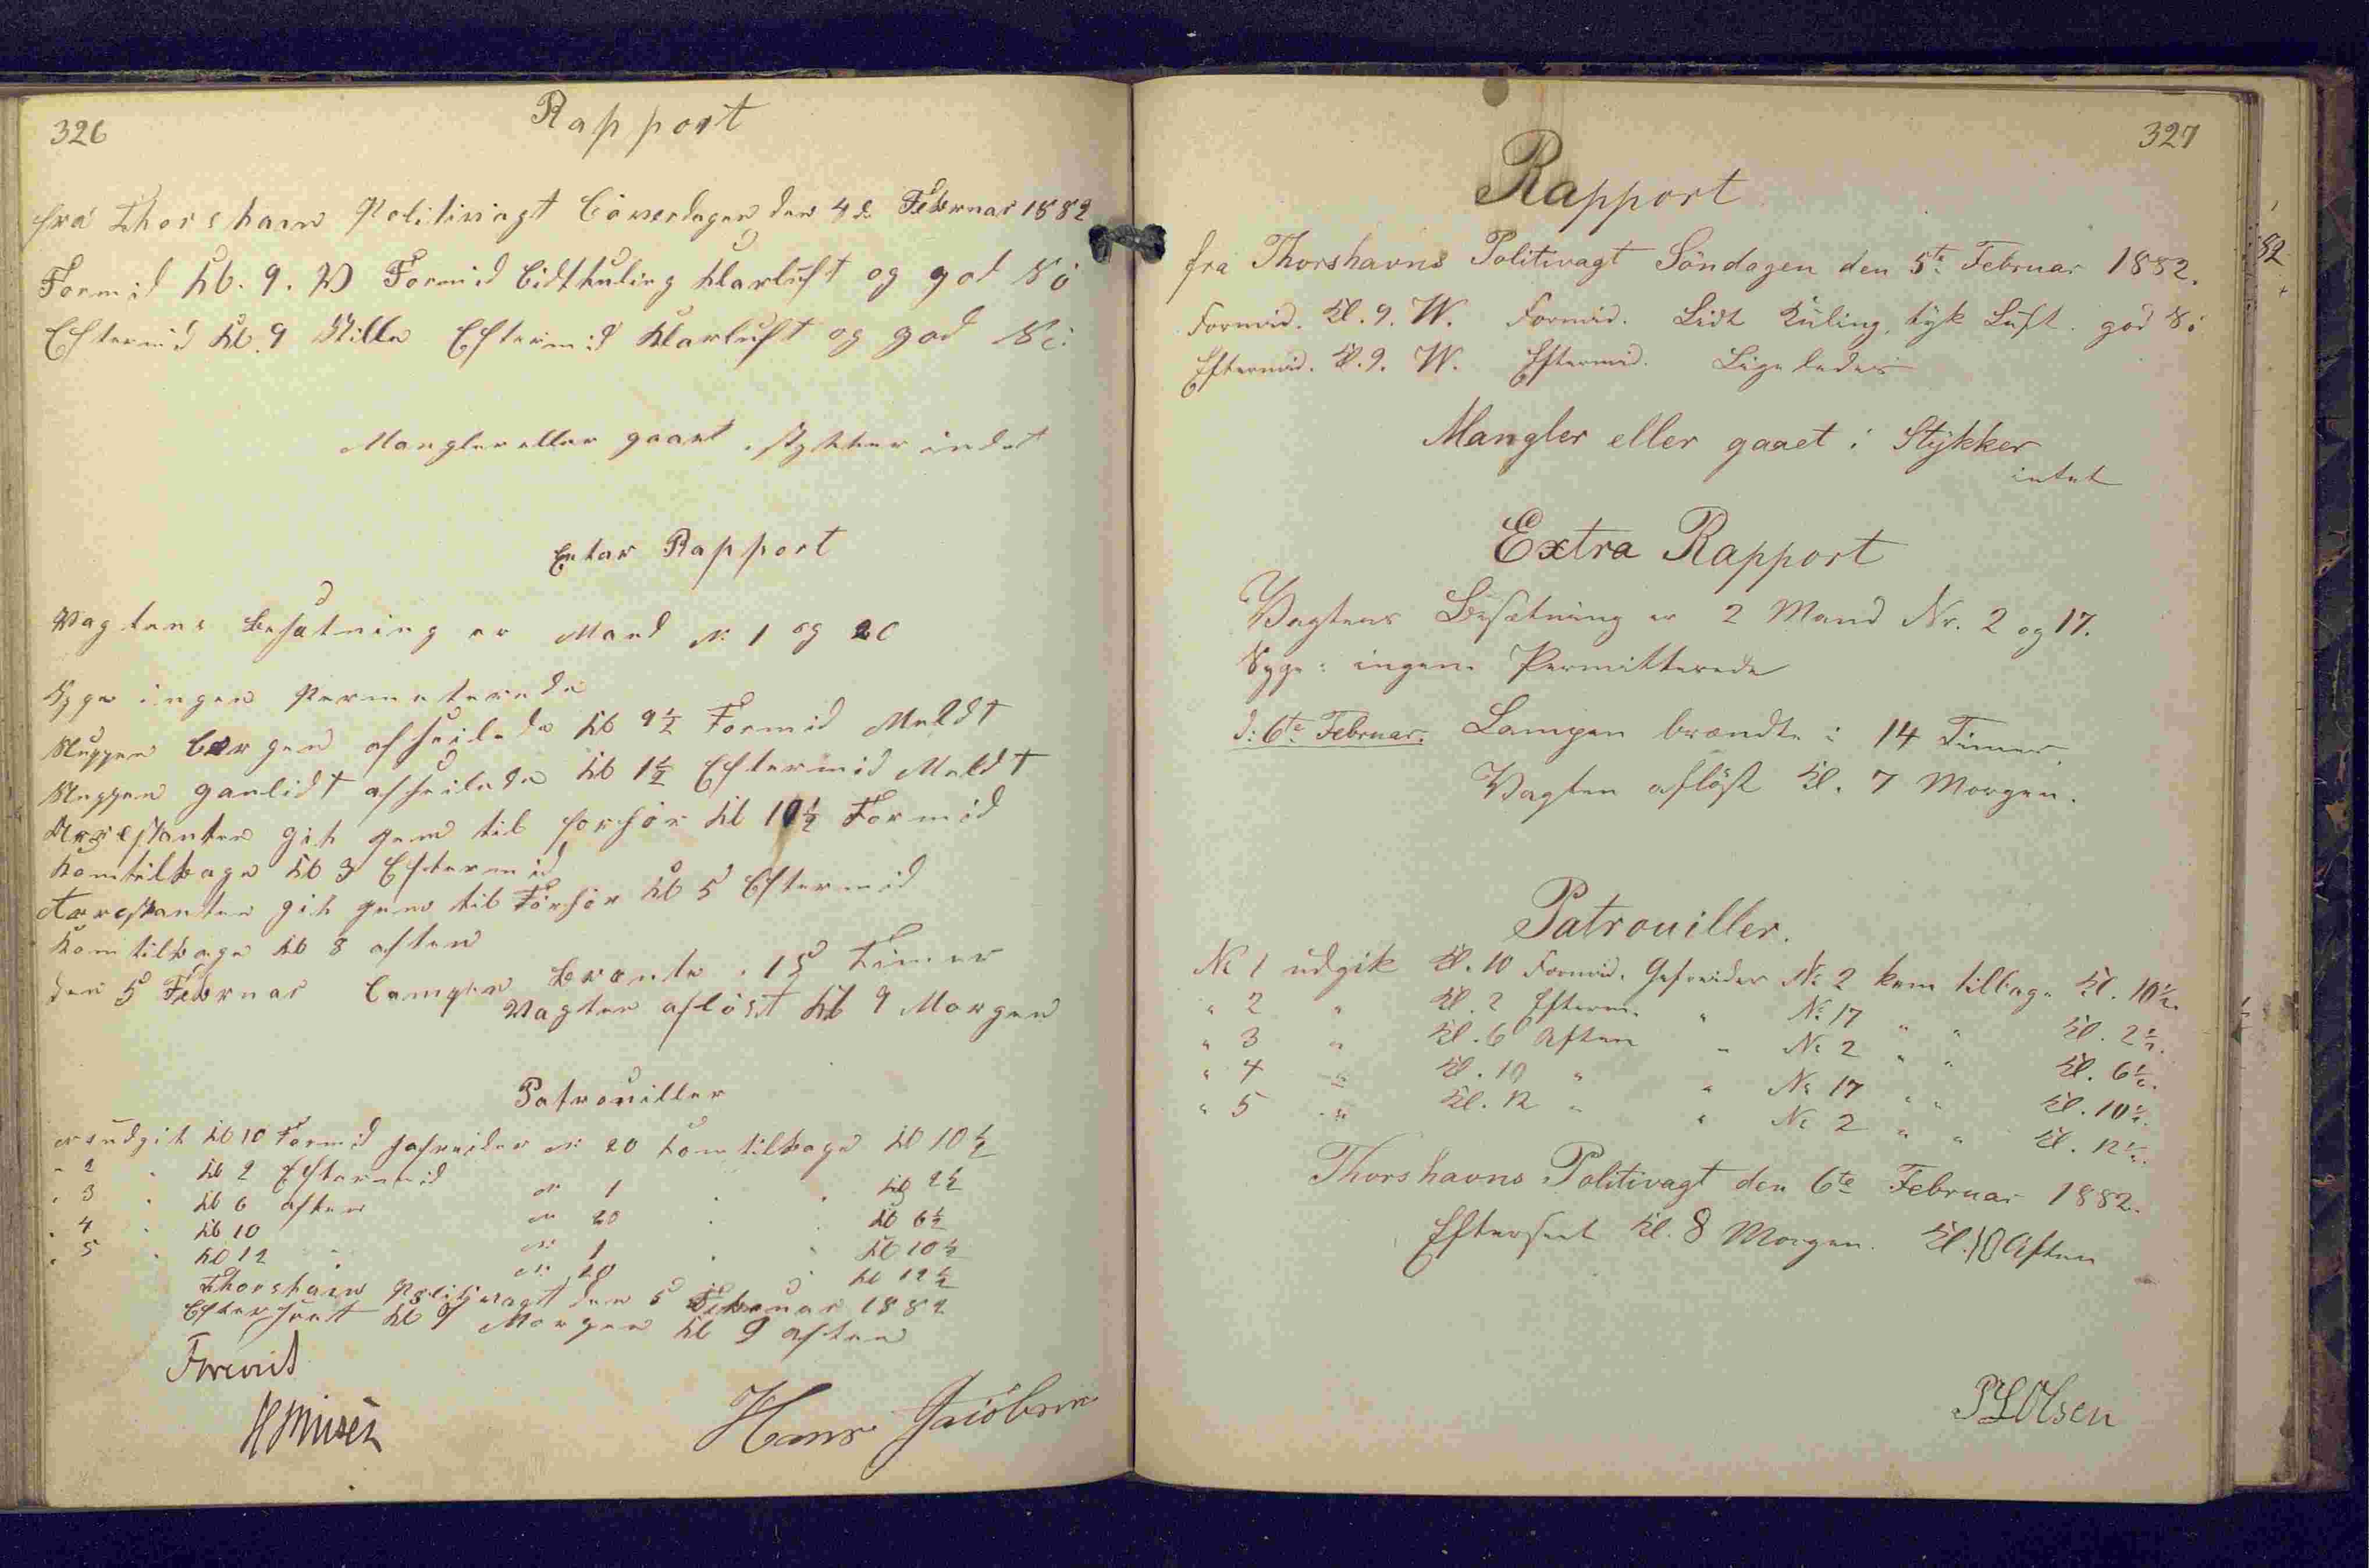 326
Rapport
fra Thorshavn Politivagt Löverdagen den 4de Februar 1882
Formid kl. 9. W Formid lidt kuling klarluft og god Sö
Eftermid kl. 9 Stille Eftermid klarluft og god Sö
Mangler eller gaaet i stykker indet
Rapport
Vagtens besætning er Mand N: 1 og 20
Syge ingen Permeterede
Sluppen afseilede kl 9½ Formid Meldt
Sluppen afseilede kl 1½ Eftermid Meldt
Arrestanten gik hen til forhör kl 10½ Formid
kom tilbage kl 3 Eftermid
Arrestanten gik hen til Forhör kl 5 Eftermid
kom tilbage kl 8 aften
den 5 Februar Lampen brænte i 15 Timer
Vagten aflöst kl 9 Morgen
Patrouiller
udgik kl 10 Formid Gefreider N: 20 kom tilbage kl 10½
" 2 " kl 2 Eftermid N: 1 " " kl 2½
" 3 " kl 6 aften N: 20 " " kl 6½
" 4 " kl 10 N: 1 " " kl 10½
" 5 " kl 12 " N: 20 " kl 12½
Thorshavn Politivagt den 5 Februar 1882
Efterseet kl 9 Morgen kl 9 aften
Hans Jacobsen
327
Rapport
fra Thorshavns Politivagt Söndagen den 5te Februar 1882.
Formid. Kl. 9. W. Formid. Lidt Kuling, tyk Luft. god Sö
Eftermid. Kl. 9. W. Eftermid. Ligeledes
Mangler eller gaaet i Stykker
intet
Extra Rapport
Vagtens Besætning er 2 Mand Nr. 2 og 17.
Syge: ingen Permitterede
d: 6te Februar. Lampen brændte i 14 Timer.
Vagten aflöst Kl. 7 Morgen.
Patrouiller.
No 1 udgik Kl. 10 Formid. Gefreider No 2 kom tilbage Kl. 10½.
" 2 " Kl. 2 Efterm. " No 17 " " Kl. 2½.
" 3 " Kl. 6 Aften " No 2 " " Kl. 6½.
" 4 " Kl. 10 " " No 17 " " Kl. 10½.
" 5 " Kl. 12 " " No 2 " " Kl. 12½.
Thorshavns Politivagt den 6te Februar 1882.
Efterseet Kl. 8 Morgen. Kl. 10 Aften
Olsen